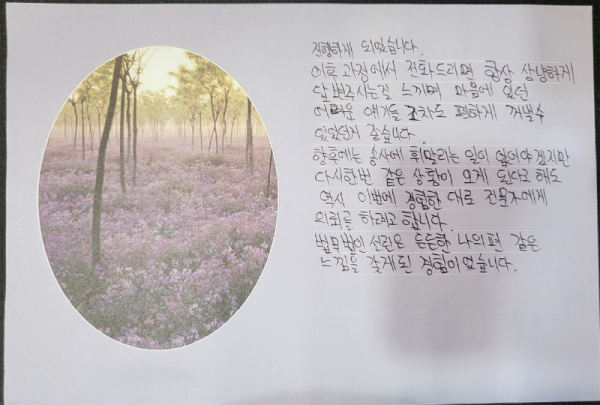 진행하게 되었습니다.
이후 과정에서 전화드리면 항상 상냥하게
답변주시는걸 느끼며 마음에 있던
어려운 얘기들 조차도 편하게 꺼낼수
있었던게 좋습니다.
향후에는 송사에 휘말리는 일이 없어야겠지만
다시한번 같은 상황이 오게 된다고 해도
역시 이번에 경험한 대로 전문가에게
의뢰를 하려고 합니다.
법무법인 선린은 든든한 나의편 같은
느낌을 갖게된 경험이었습니다.